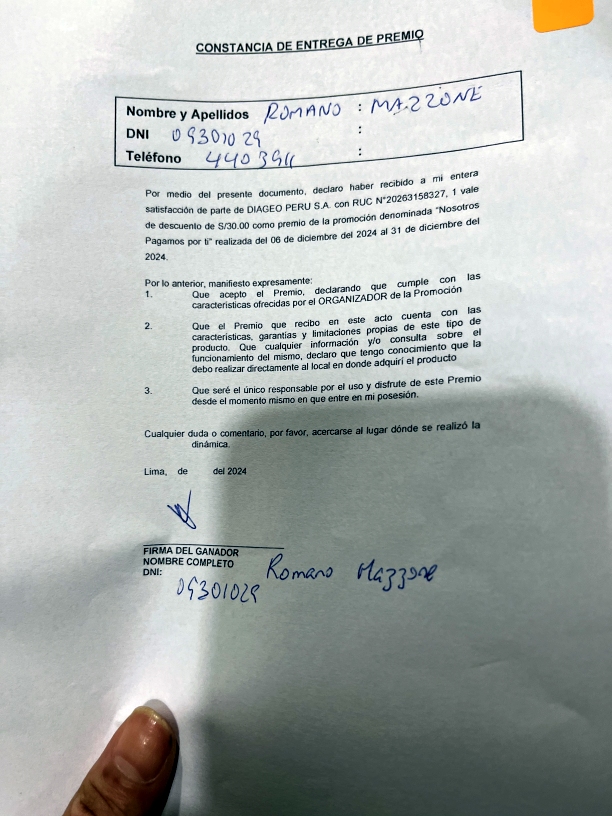 CONSTANCIA DE ENTREGA DE PREMIO
Nombre y Apellidos ROMANO : MAZZONE
DNI 09301029 :
Teléfono :
Por medio del presente documento, declaro haber recibido a mi entera
satisfacción de parte de DIAGEO PERU S.A. con RUC N°20263158327, 1 vale
de descuento de S/30.00 como premio de la promoción denominada "Nosotros
Pagamos por ti" realizada del 06 de diciembre del 2024 al 31 de diciembre del
2024.
Por lo anterior, manifiesto expresamente:
1. Que acepto el Premio, declarando que cumple con las
características ofrecidas por el ORGANIZADOR de la Promoción
2. Que el Premio que recibo en este acto cuenta con las
características, garantías y limitaciones propias de este tipo de
producto. Que cualquier información y/o consulta sobre el
funcionamiento del mismo, declaro que tengo conocimiento que la
debo realizar directamente al local en donde adquirí el producto
3. Que seré el único responsable por el uso y disfrute de este Premio
desde el momento mismo en que entre en mi posesión.
Cualquier duda o comentario, por favor, acercarse al lugar dónde se realizó la
dinámica.
Lima, de del 2024
FIRMA DEL GANADOR
NOMBRE COMPLETO Romano Mazzone
DNI: 09301029